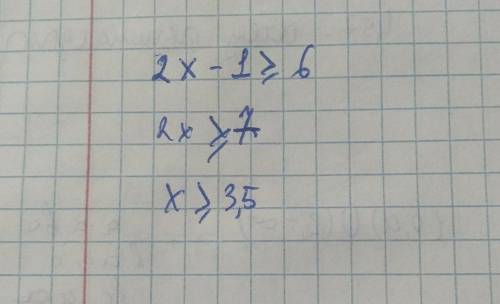 2x - 1 ≥ 6
2x ≥ 7
x ≥ 3,5